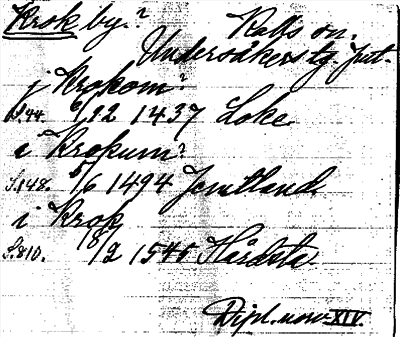 Krok by.? Kalls sn.
Undersåkers tg. Jmt.
j Krokom?
S.44. 6/12 1437 Loke
i Krokum?
S.148. 5/6 1494 Jemtland.
i Krok
S.810. 18/2 1540 Hårdsta
Dipl. norv. XIV.